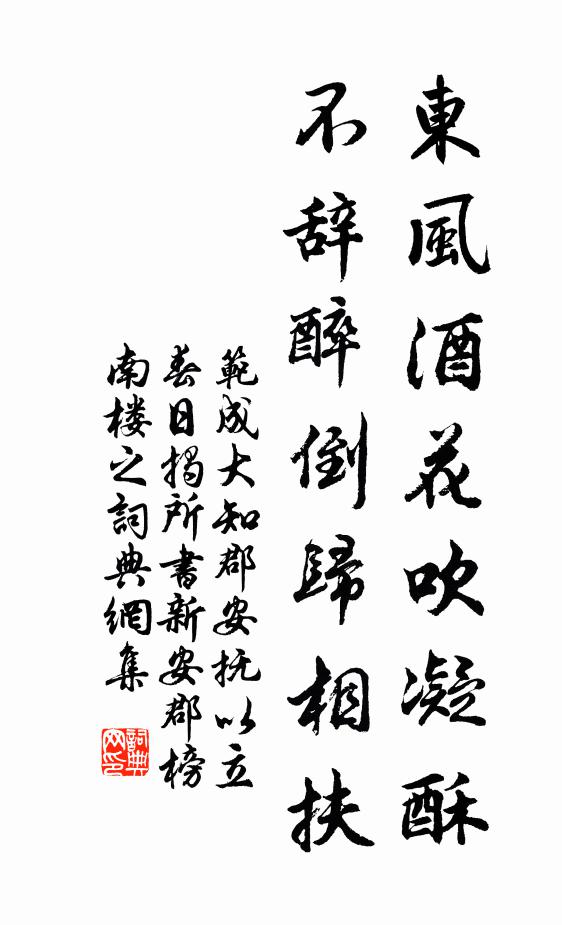 東風酒花吹凝酥
不辞醉倒歸相扶
範成大知郡安抚以立
春日揭所書新安郡榜
南楼之詞典網集
詞典
网印